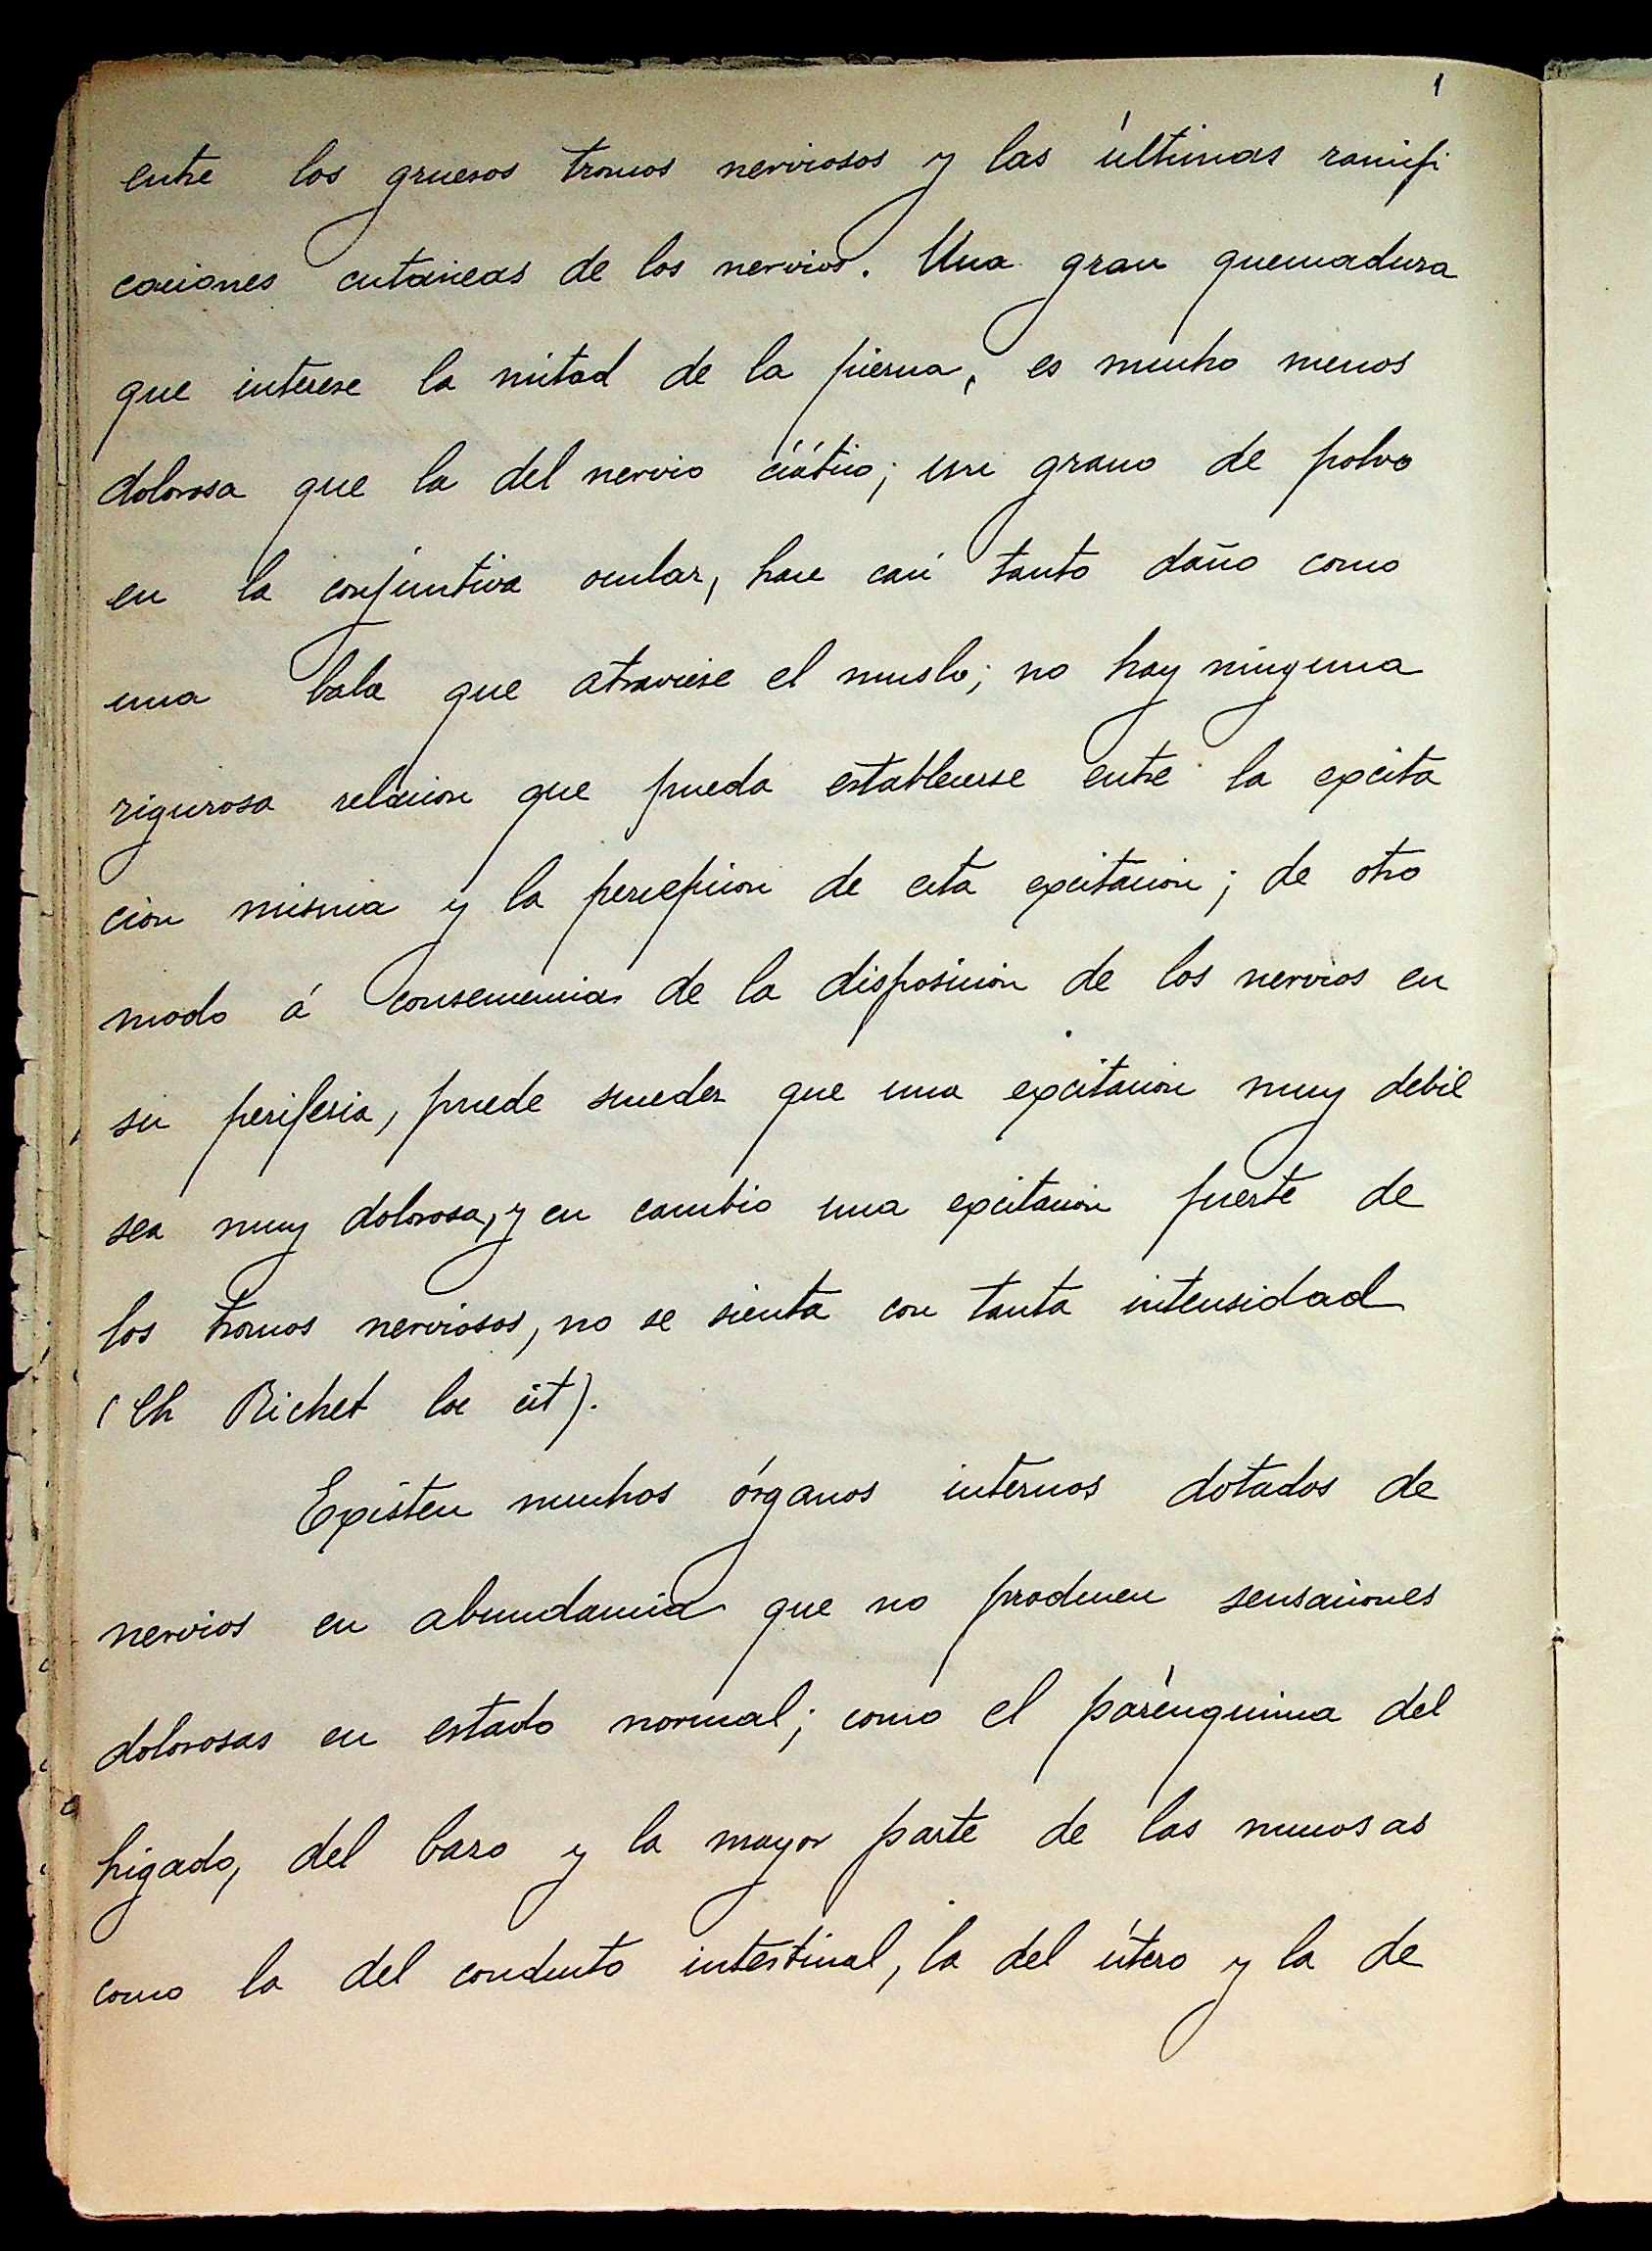 1
entre los gruesos troncos nerviosos y las últimas ramifi
caciones cutaneas de los nervios. Una gran quemadura
que interese la mitad de la pierna, es mucho menos
dolorosa que la del nervio ciático; un grano de polvo
en la conjuntiva ocular, hace casi tanto daño como
una bala que atraviese el muslo; no hay ninguna
rigurosa relacion que pueda establecerse entre la excita
cion misma y la percepcion de esta excitacion; de otro
modo á consecuencia de la disposicion de los nervios en
su periferia, puede suceder que una excitacion muy debil
sea muy dolorosa, y en cambio una excitacion fuerte de
los troncos nerviosos, no se sienta con tanta intensidad
(Ch Richet loc cit).
Existen muchos órganos internos dotados de
nervios en abundancia que no producen sensaciones
dolorosas en estado normal; como el parénquima del
higado, del bazo y la mayor parte de las mucosas
como la del conducto intestinal, la del útero y la de